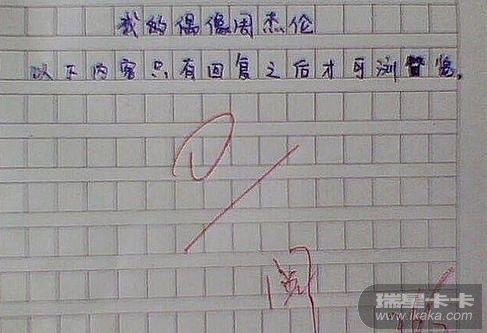 我的偶像周杰伦
以下内容只有回复之后才可浏览。
0
阅
瑞星卡卡
www.ikaka.com